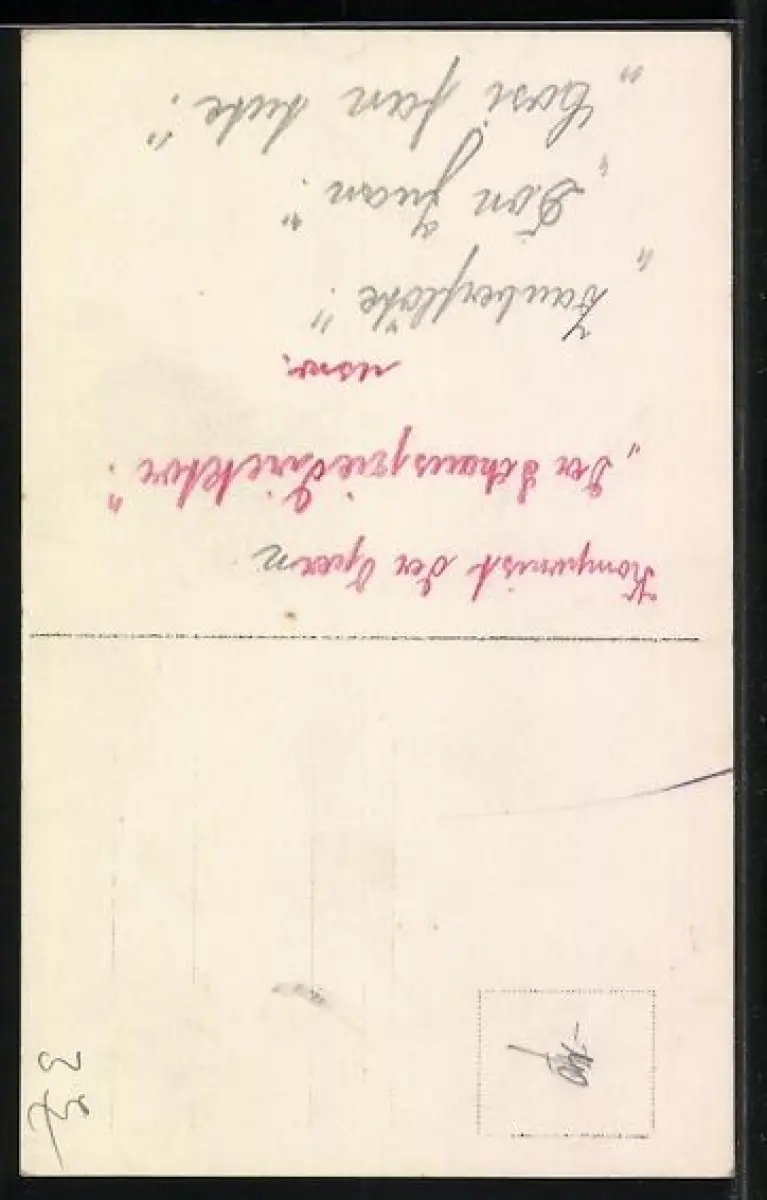 Komponist der Opern
„Der Schauspieldirektor."
usw.
Zauberflöte."
„Don Juan."
„Cosi fan tute."